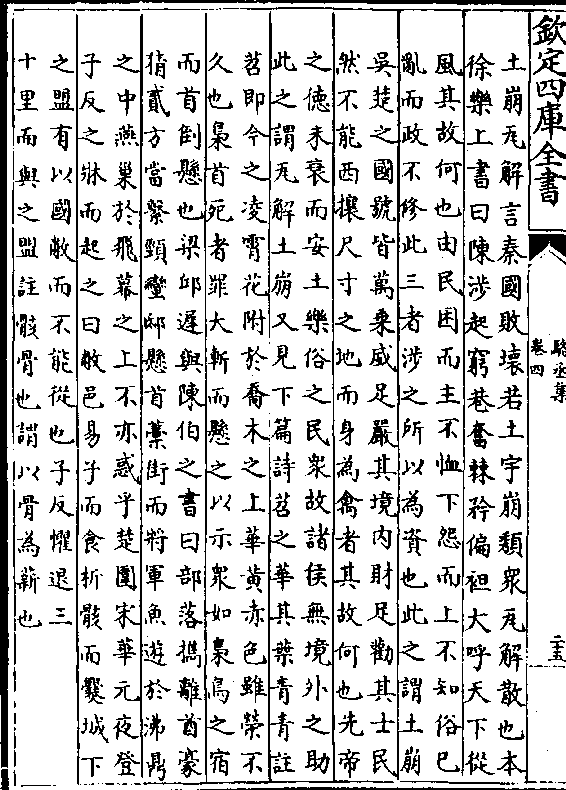 欽定四庫全書
駱丞集
卷四
二十五
土崩瓦解言秦國敗壞若土宇崩頹衆瓦解散也本
徐樂上書曰陳涉起窮巷奮棘矜偏袒大呼天下從
風其故何也由民困而主不恤下怨而上不知俗已
亂而政不修此三者涉之所以為資也此之謂土崩
吳楚之國號皆萬乗威足嚴其境内財足勸其士民
然不能西攘尺寸之地而身為禽者其故何也先帝
之德未衰而安土樂俗之民衆故諸侯無境外之助
此之謂瓦解土崩又見下篇詩苕之華其葉青青註
苕即今之凌霄花附於喬木之上華黄赤色雖榮不
久也梟首宛者罪大斬而懸之以示衆如梟鳥之宿
而首倒懸也梁邱遲與陳伯之書曰部落擕離酋豪
猜貳方當繫頸蠻邸懸首藁街而將軍魚遊於沸鼎
之中燕巢於飛幕之上不亦惑乎楚圍宋華元夜登
子反之牀而起之曰敝邑易子而食析骸而爨城下
之盟有以國敝而不能從也子反懼退三
十里而與之盟註骸骨也謂以骨為薪也